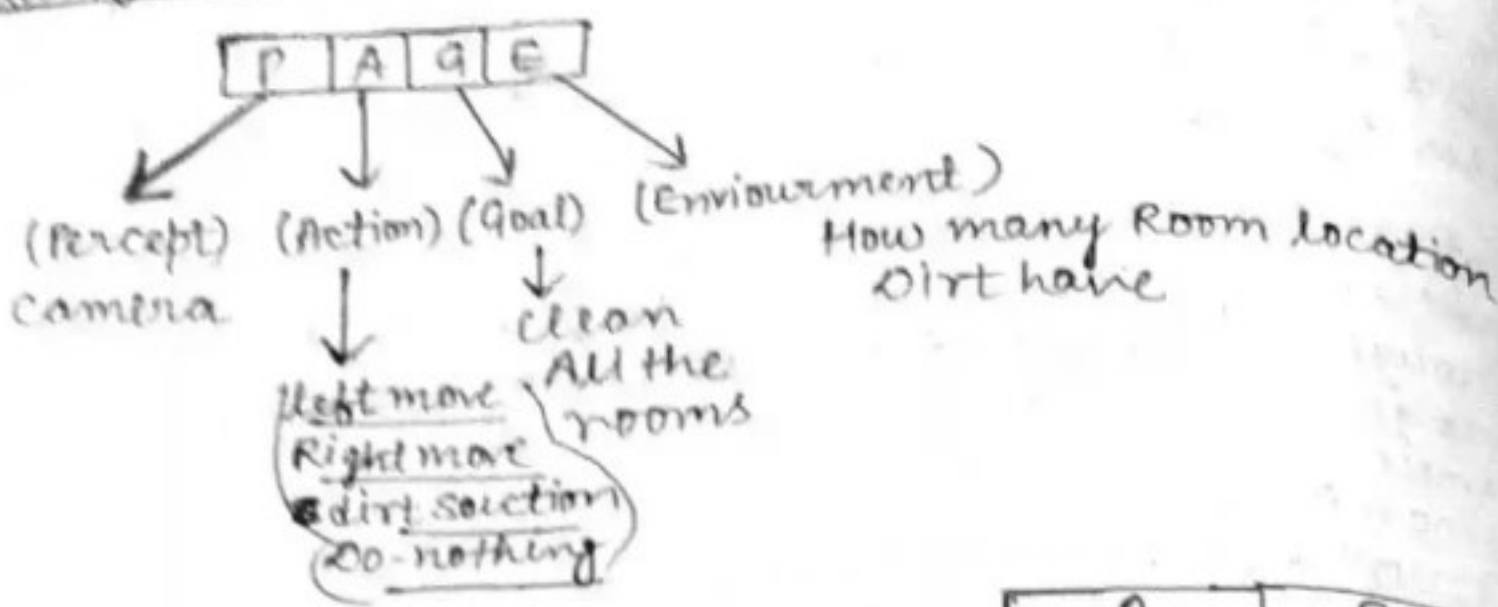 P A G E
(Percept) (Action) (Goal) (Enviourment)
camera
How many Room location
Dirt have
clean
All the
rooms
Left move
Right move
dirt suction
Do-nothing